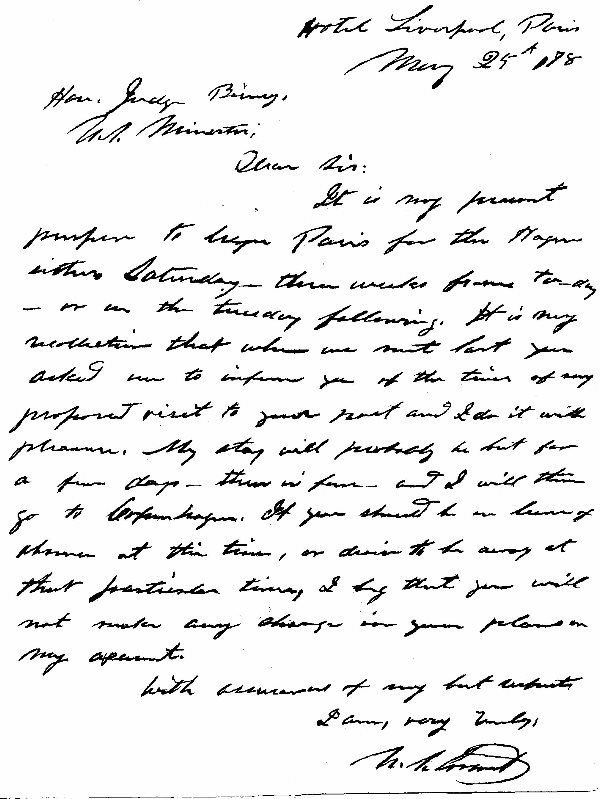 Hotel Liverpool, Paris
May 25th 1878
Hon. Judge Birney,
U.S. Minister,
Dear Sir:
It is my present
purpose to leave Paris for the Hague
either Saturday – three weeks from to-day
– or on the tuesday following. It is my
recollection that when we met last you
asked me to inform you of the time of my
proposed visit to your post and I do it with
pleasure. My stay will probably be but for
a few days – three or four – and I will then
go to Copenhagen. If you should be on leave of
absence at the time, or desire to be away at
that particular time, I beg that you will
not make any change in your plans on
my account.
With assurances of my best
I am, very truly,
U. S. Grant